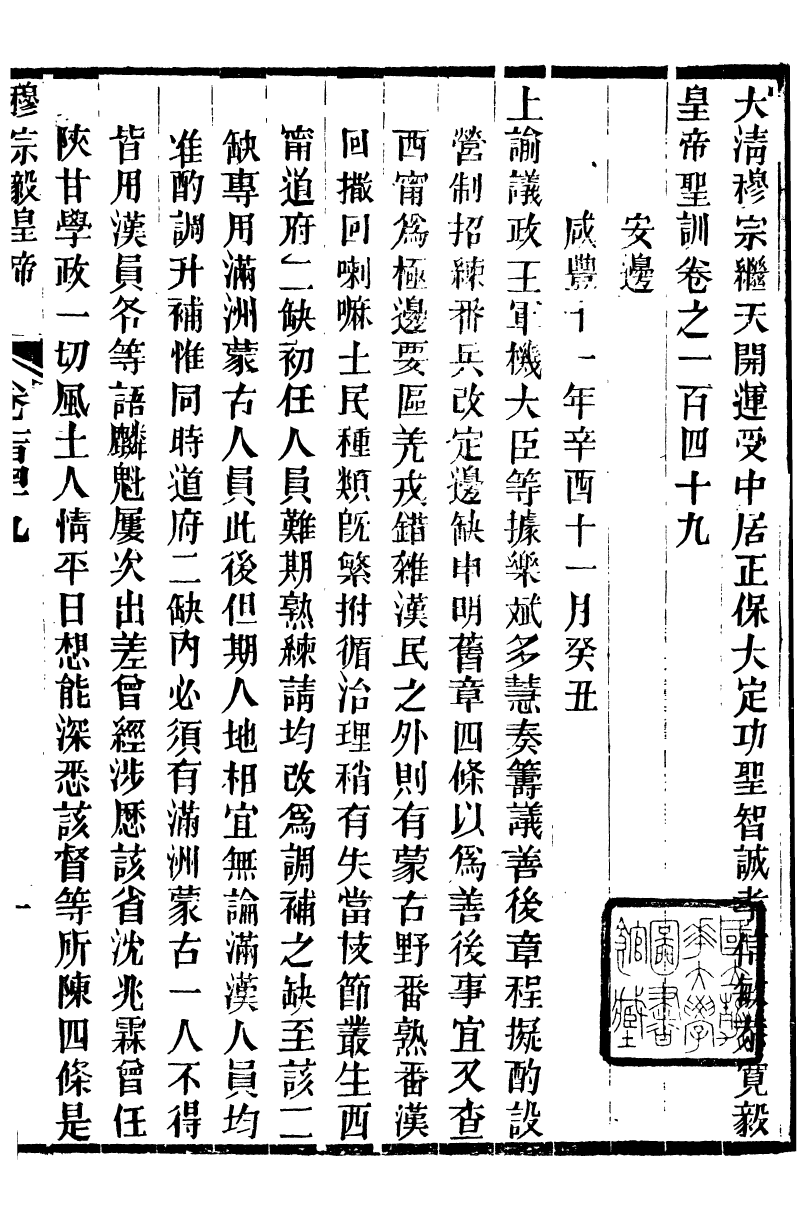 大淸穆宗繼天開運受中居正保大定功聖智誠孝信敏恭寬毅
皇帝聖訓卷之一百四十九
安邊
咸豐十一年辛酉十一月癸丑
上諭議政王軍機大臣等據樂斌多慧奏籌議善後章程擬酌設
營制招練番兵改定邊缺申明舊章四條以爲善後事宜又查
西甯爲極邊要區羌戎錯雜漢民之外則有蒙古野番熟番漢
回撒回喇嘛土民種類旣繁拊循治理稍有失當枝節叢生西
甯道府二缺初任人員難期熟練請均改爲調補之缺至該二
缺專用滿洲蒙古人員此後但期人地相宜無論滿漢人員均
准酌調升補惟同時道府二缺內必須有滿洲蒙古一人不得
皆用漢員各等語麟魁屢次出差曾經涉歷該省沈兆霖曾任
陝甘學政一切風土人情平日想能深悉該督等所陳四條是
穆宗毅皇帝
卷一百四十九
一
國立清
華大學
圖書
館藏